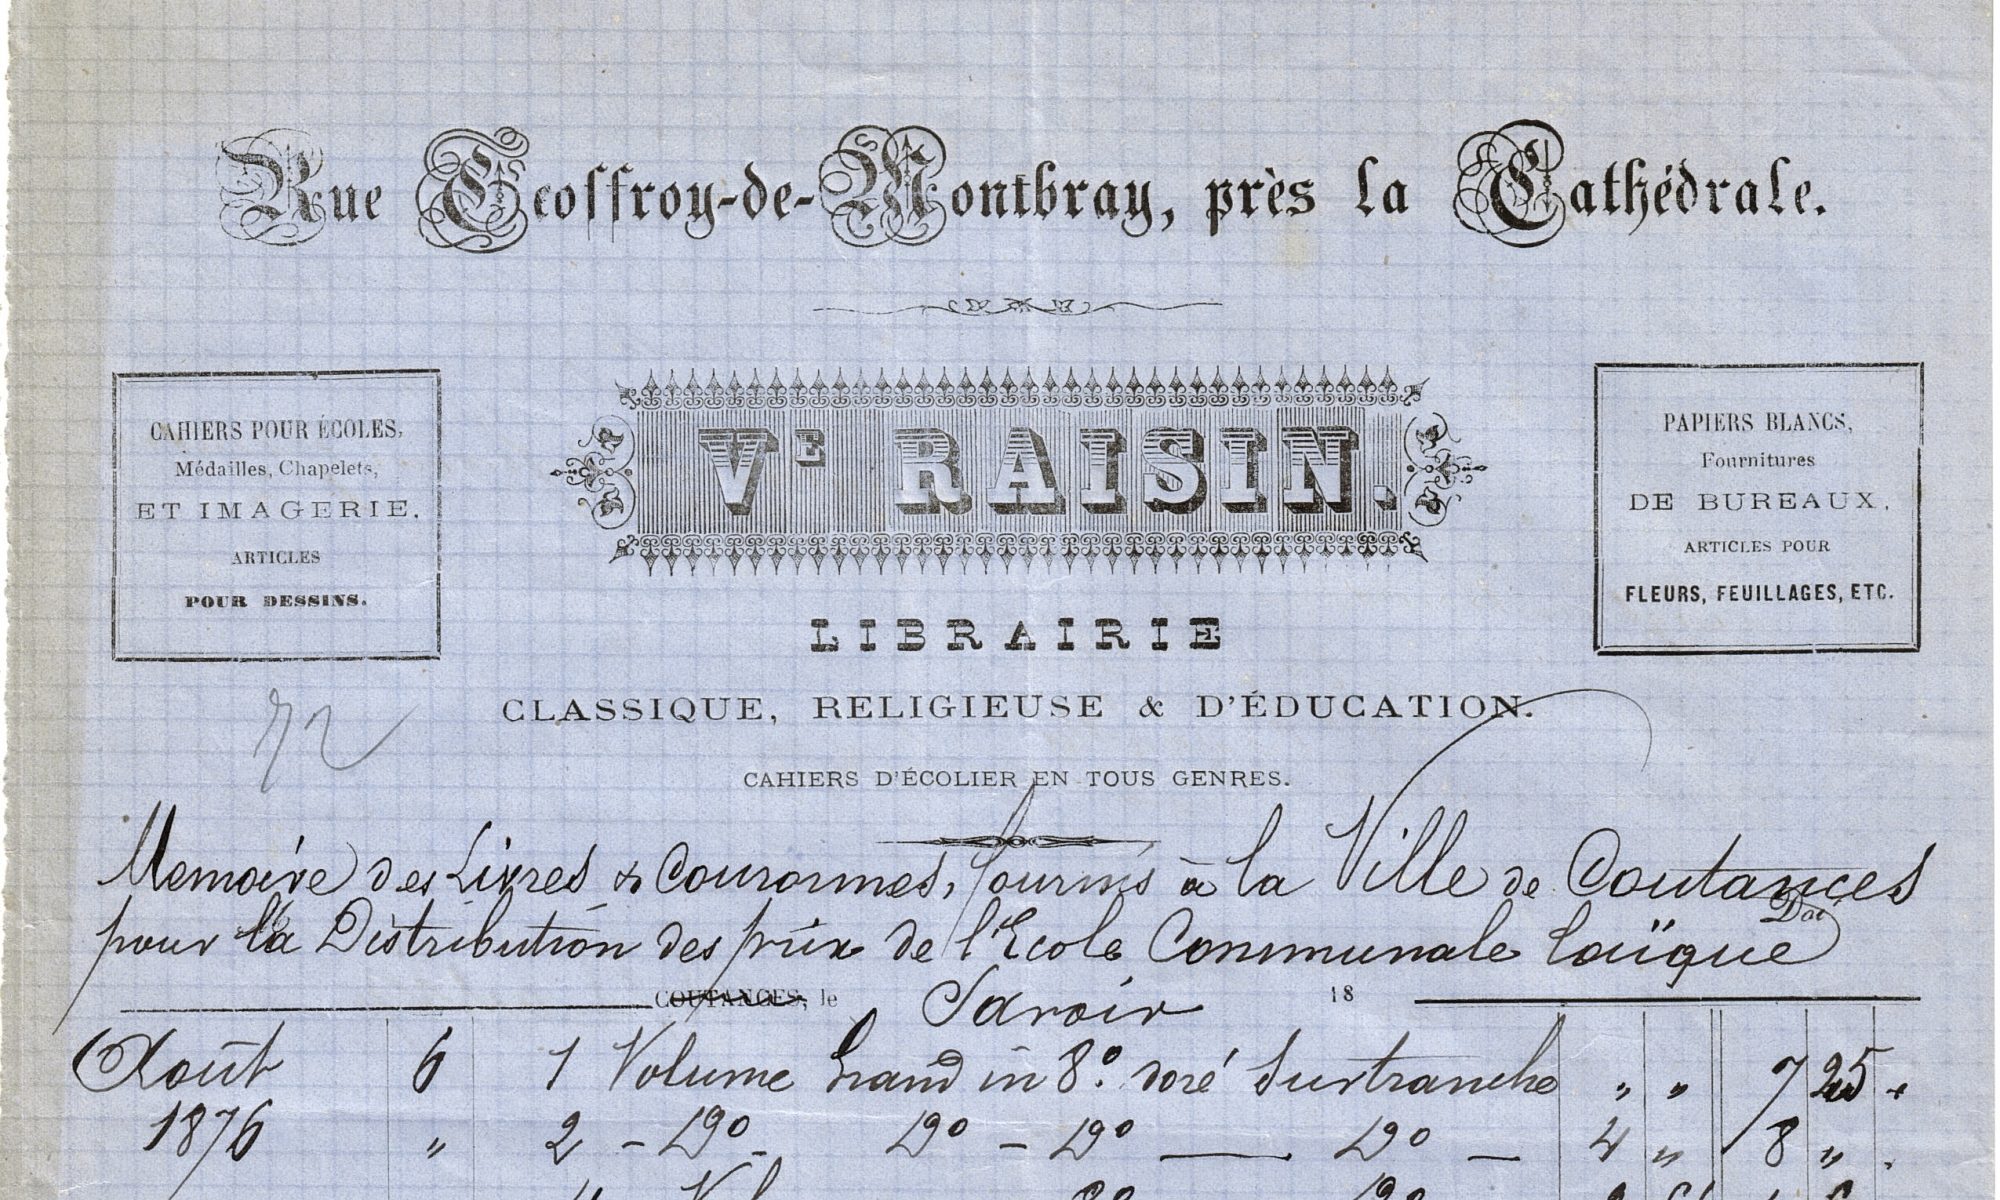 Rue Geoffroy-de-Montbray, près la Cathédrale.
CAHIERS POUR ÉCOLES,
Médailles, Chapelets,
ET IMAGERIE,
ARTICLES
POUR DESSINS.
Ve RAISIN.
PAPIERS BLANCS,
Fournitures
DE BUREAUX,
ARTICLES POUR
FLEURS, FEUILLAGES, ETC.
LIBRAIRIE
CLASSIQUE, RELIGIEUSE & D'ÉDUCATION.
72
CAHIERS D'ÉCOLIER EN TOUS GENRES.
Memoire des Livres & Couronnes, fournis à la Ville de Coutances
pour la Distribution des prix de l'Ecole Communale laïque
COUTANCES, le Savoir 18
Août 6 1 Volume Grand in 8º doré Sur tranche " " 7 25
1876 " 2 - Dº - Dº - Dº — Dº — 4 " 8 "